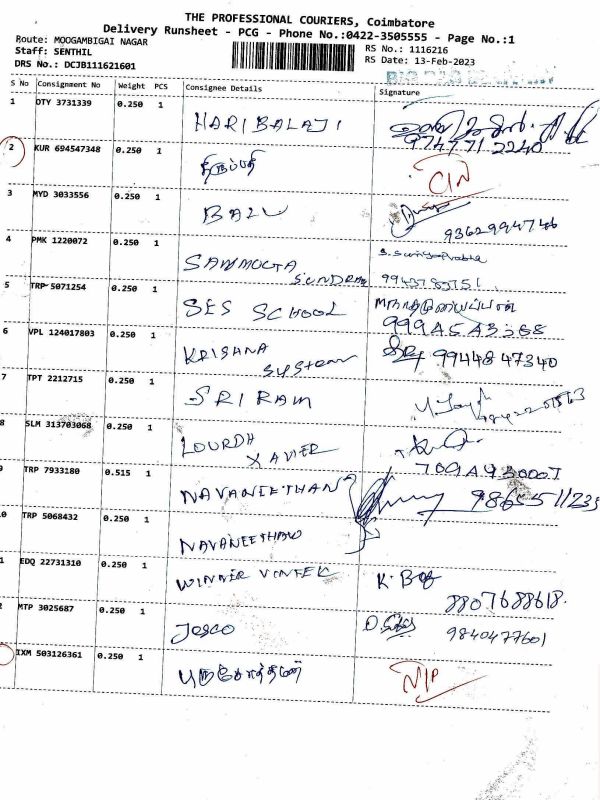 THE PROFESSIONAL COURIERS, Coimbatore
Delivery Runsheet - PCG - Phone No.:0422-3505555 - Page No.:1
Route: MOOGAMBIGAI NAGAR
RS No.: 1116216
Staff: SENTHIL
RS Date: 13-Feb-2023
DRS No.: DCJB111621601
S No Consignment No Weight PCS Consignee Details Signature
1 OTY 3731339 0.250 1 HARI BALAJI
97477 12240
2 KUR 694547348 0.250 1 திருப்பதி CIN
3 MYD 3033556 0.250 1 BALU
9362994746
4 PMK 1220072 0.250 1 SANMUGA
SUNDRAM
5 TRP 5071254 0.250 1 SES SCHOOL
6 VPL 124017803 0.250 1 KRISHNA
System 9944847340
7 TPT 2212715 0.250 1 SRI RAM
8 SLM 313703068 0.250 1 LOURDH
XAVIER
9 TRP 7933180 0.515 1 NAVANEETHAN
0 TRP 5068432 0.250 1 NAVANEETHAN
1 EDQ 22731310 0.250 1 WINNER K.
8807688618.
2 MTP 3025687 0.250 1 JOSCO 9840477601
IXM 503126361 0.250 1 புருஷோத்தமன் N/P